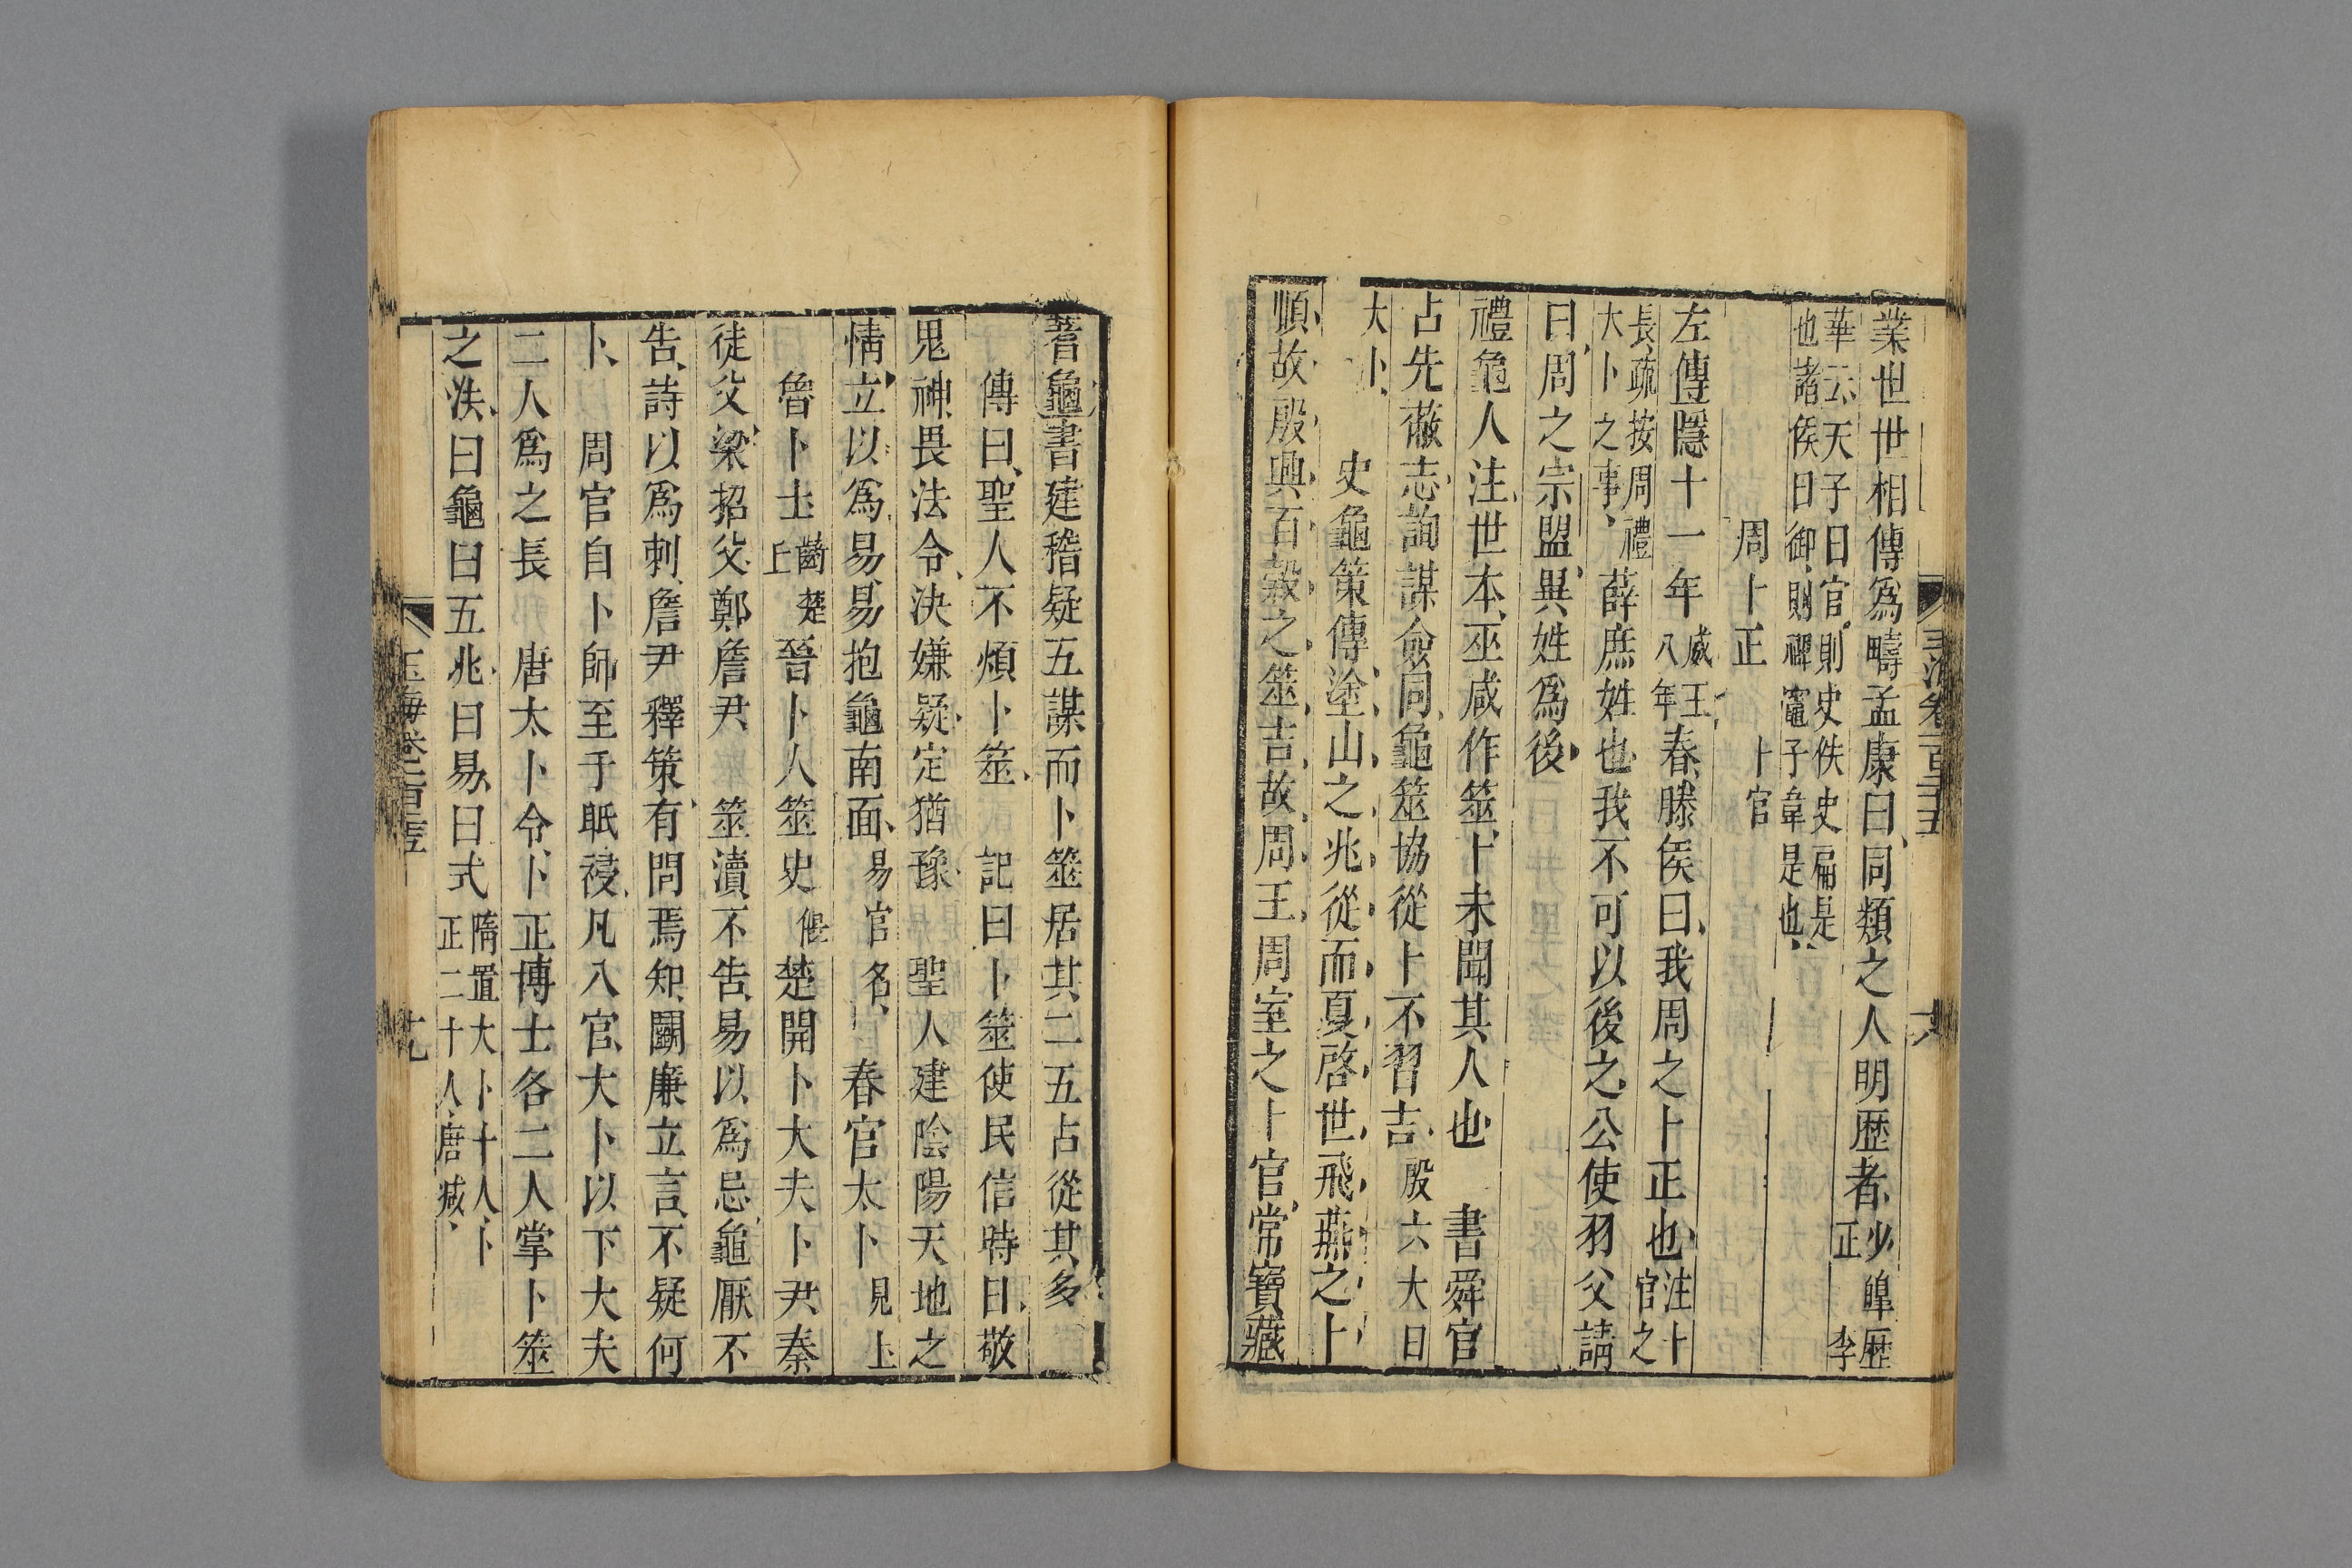 業世世相傳爲疇孟康曰同類之人明歴者少皥歴
正
李
華云天子日官則史佚史扁是
也諸侯日御則禆竈子韋是也
周卜正　卜官
左傳隱十一年威王
八年春滕侯曰我周之卜正也注卜
官之
長疏按周禮
大卜之事薛庶姓也我不可以後之公使羽父請
曰周之宗盟異姓爲後
禮龜人注世本巫咸作筮卜未聞其人也　書舜官
占先蔽志詢謀僉同龜筮協從卜不習吉殷六大曰
大卜　史龜策傳塗山之兆從而夏啓世飛燕之卜
順故殷興百穀之筮吉故周王周室之卜官常寶藏
蓍龜書建稽疑五謀而卜筮居其二五占從其多
傳曰聖人不煩卜筮　記曰卜筮使民信時日敬
鬼神畏法令決嫌疑定猶豫　聖人建陰陽天地之
情立以爲易易抱龜南面易官名　春官太卜見上
魯卜士齮
丘　楚晉卜人筮史偃楚開卜大夫卜尹秦
徒父梁招父鄭詹尹　筮瀆不告易以爲忌龜厭不
告詩以爲刺詹尹釋策有問焉知鬬廉立言不疑何
卜　周官自卜師至于眡祲凡八官大卜以下大夫
二人爲之長　唐太卜令卜正博士各二人掌卜筮
之法曰龜曰五兆曰易曰式隋置大卜十人卜
正二十人唐減
玉海卷一百二十五
十九